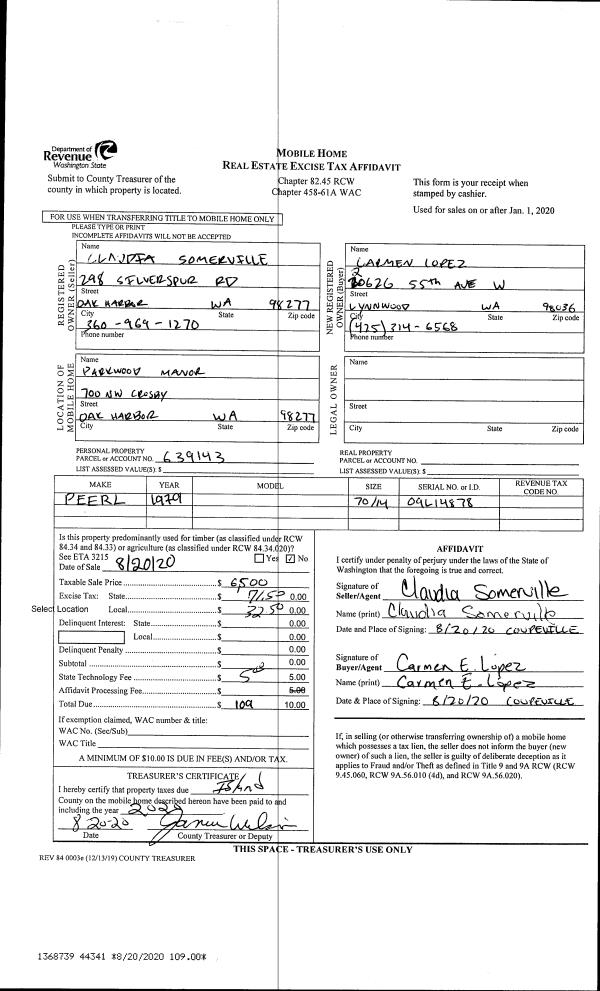 Department of
Revenue
Washington State
Submit to County Treasurer of the
county in which property is located.
MOBILE HOME
REAL ESTATE EXCISE TAX AFFIDAVIT
Chapter 82.45 RCW
Chapter 458-61A WAC
This form is your receipt when
stamped by cashier.
Used for sales on or after Jan. 1, 2020
FOR USE WHEN TRANSFERRING TITLE TO MOBILE HOME ONLY
PLEASE TYPE OR PRINT
INCOMPLETE AFFIDAVITS WILL NOT BE ACCEPTED
REGISTERED
OWNER (Seller)
Name
CLAUDIA SOMERVILLE
298 SILVERSPUR RD
Street
OAK HARBOR WA 98277
City State Zip code
360-969-1270
Phone number
NEW REGISTERED
OWNER (Buyer)
Name
CARMEN LOPEZ
20626 55th AVE W
Street
LYNNWOOD WA 98036
City State Zip code
(425) 314-6568
Phone number
LOCATION OF
MOBILE HOME
Name
PARKWOOD MANOR
700 NW CROSBY
Street
OAK HARBOR WA 98277
City State Zip code
LEGAL OWNER
Name
Street
City State Zip code
PERSONAL PROPERTY
PARCEL or ACCOUNT NO. 639143
LIST ASSESSED VALUE(S): $
REAL PROPERTY
PARCEL or ACCOUNT NO.
LIST ASSESSED VALUE(S): $
MAKE YEAR MODEL SIZE SERIAL NO. or I.D. REVENUE TAX CODE NO.
PEERL 1979 70/14 09L14878
Is this property predominantly used for timber (as classified under RCW
84.34 and 84.33) or agriculture (as classified under RCW 84.34.020)?
See ETA 3215 Yes ✓ No
Date of Sale 8/20/20
Taxable Sale Price $ 6500
Excise Tax: State $ 71.50 0.00
Select Location Local $ 32.50 0.00
Delinquent Interest: State $ 0.00
Local $ 0.00
Delinquent Penalty $ 0.00
Subtotal $ 0.00
State Technology Fee $ 5.00 5.00
Affidavit Processing Fee $ 5.00
Total Due $ 109 10.00
If exemption claimed, WAC number & title:
WAC No. (Sec/Sub)
WAC Title
A MINIMUM OF $10.00 IS DUE IN FEE(S) AND/OR TAX.
TREASURER'S CERTIFICATE
I hereby certify that property taxes due Island
County on the mobile home described hereon have been paid to and
including the year 2020
8-20-20
Date County Treasurer or Deputy
AFFIDAVIT
I certify under penalty of perjury under the laws of the State of
Washington that the foregoing is true and correct.
Signature of
Seller/Agent Claudia Somerville
Name (print) Claudia Somerville
Date and Place of Signing: 8/20/20 COUPEVILLE
Signature of
Buyer/Agent Carmen E. Lopez
Name (print) Carmen E. Lopez
Date & Place of Signing: 8/20/20 COUPEVILLE
If, in selling (or otherwise transferring ownership of) a mobile home
which possesses a tax lien, the seller does not inform the buyer (new
owner) of such a lien, the seller is guilty of deliberate deception as it
applies to Fraud and/or Theft as defined in Title 9 and 9A RCW (RCW
9.45.060, RCW 9A.56.010 (4d), and RCW 9A.56.020).
THIS SPACE - TREASURER'S USE ONLY
REV 84 0003e (12/13/19) COUNTY TREASURER
1368739 44341 *8/20/2020 109.00*